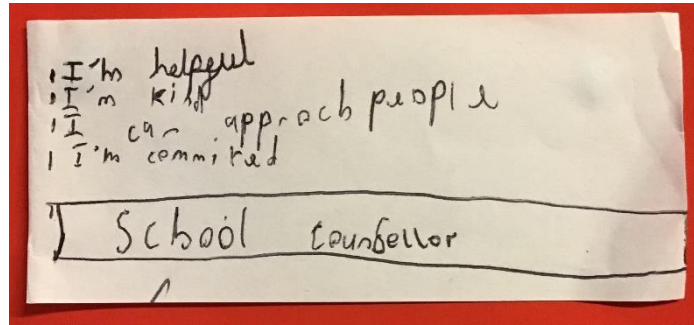 I'm helpful
I'm kind
I can approch people
I'm commited
School counsellor